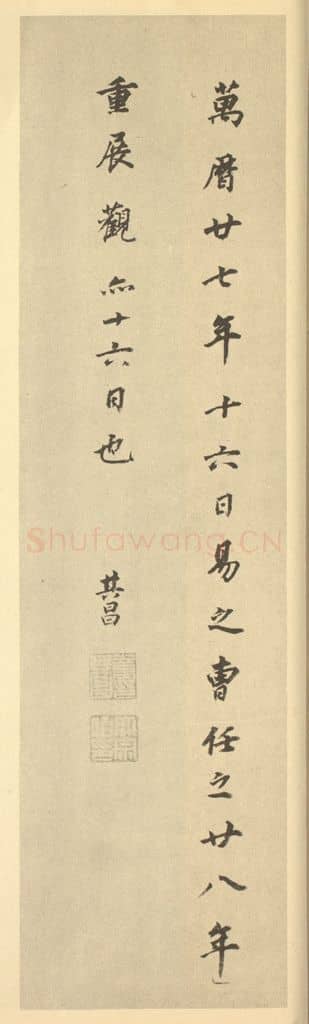 萬曆廿七年十六日易之曹任之廿八年
重展觀亦十六日也
其昌
Shufawang.CN